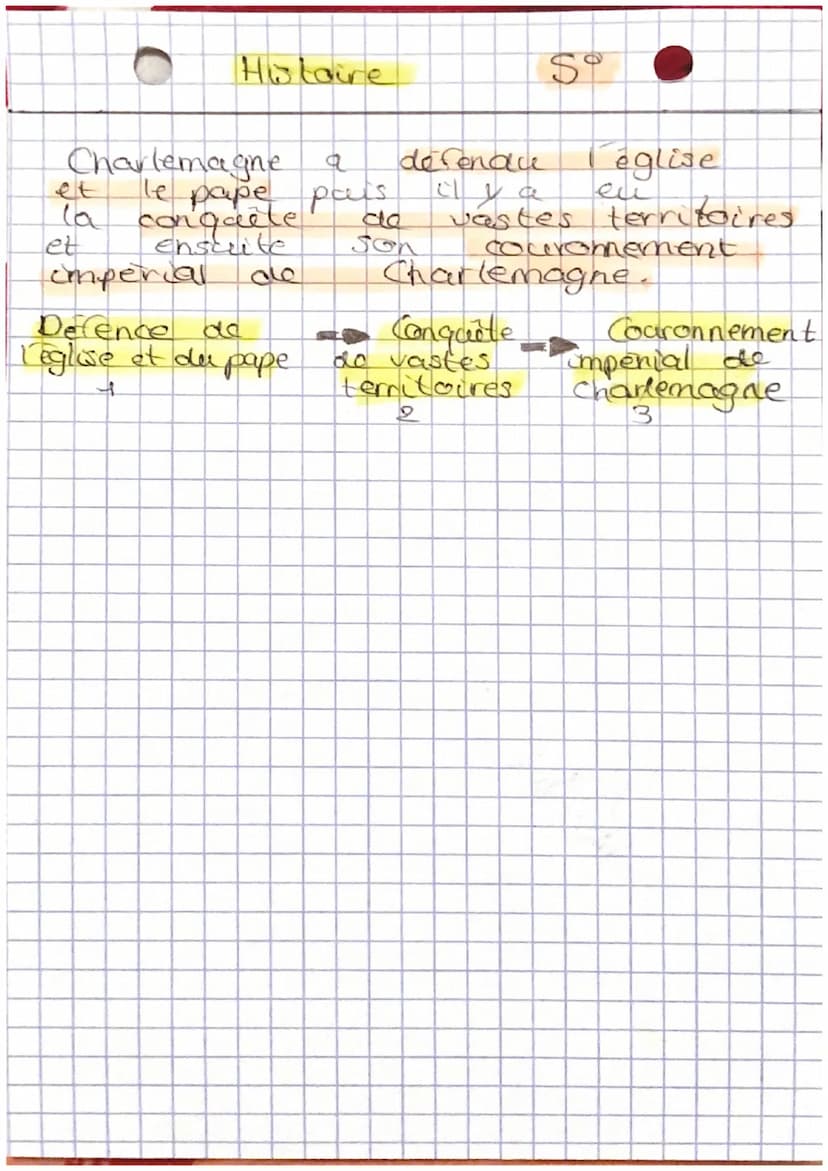 Histoire 5°
Charlemagne a défendu l'église
et le pape puis il y a eu
la conquête de vastes territoires
et ensuite son couronnement
impérial de Charlemagne.
Défence de → Conquête → Couronnement
l'église et du pape de vastes impérial de
1 territoires Charlemagne
2 3